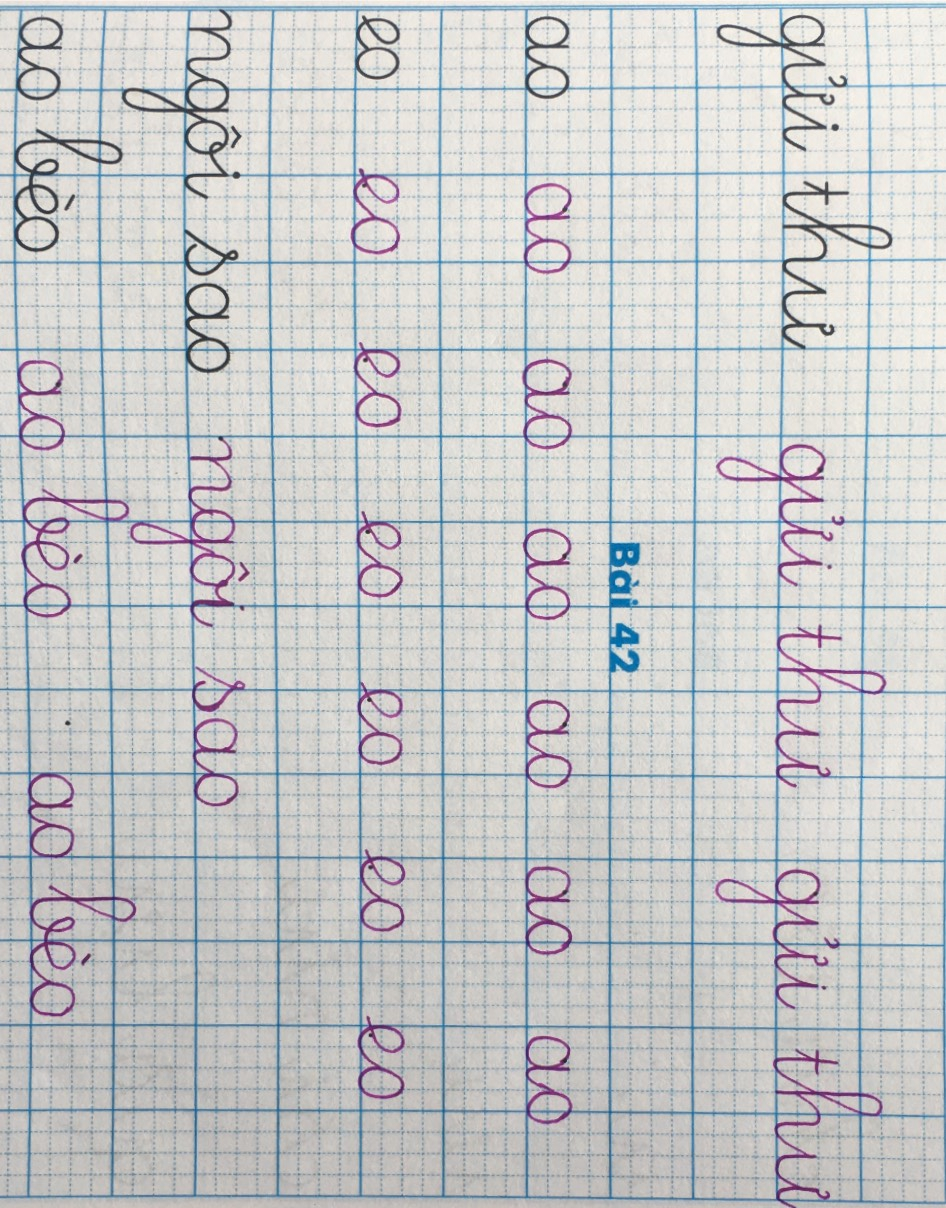 gửi thư gửi thư gửi thư
Bài 42
ao ao ao ao ao ao ao
eo eo eo eo eo eo eo
ngôi sao ngôi sao
ao bèo ao bèo ao bèo